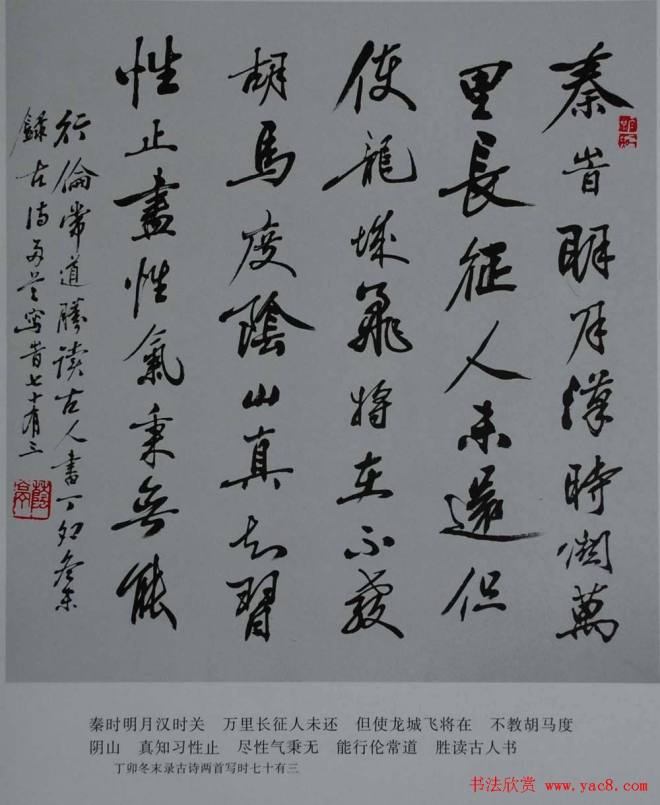 秦旹明月漢時関萬
里長征人未還但
使龍城飛將在不教
胡馬度陰山真知習
性止盡性氣秉無能
行倫常道勝读古人書丁卯冬末
錄古诗两首寫旹七十有三
秦时明月汉时关　万里长征人未还　但使龙城飞将在　不教胡马度
阴山　真知习性止　尽性气秉无　能行伦常道　胜读古人书
丁卯冬末录古诗两首写时七十有三
书法欣赏
www.yac8.com